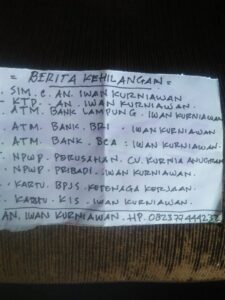 = BERITA KEHILANGAN =
- SIM. C. AN. IWAN KURNIAWAN
- KTP. . AN. IWAN KURNIAWAN.
- ATM. BANK LAMPUNG. IWAN KURNIAWAN
. ATM. BANK. BRI . IWAN KURNIAWAN
. ATM. BANK. BCA : IWAN KURNIAWAN.
. NPWP. PERUSAHAN. CV. KURNIA ANUGRAH
- NPWP. PRIBADI. IWAN KURNIAWAN.
. KARTU. BPJS. KETENAGA KERJAAN.
. KARTU. KIS. IWAN KURNIAWAN.
AN. IWAN KURNIAWAN. HP.